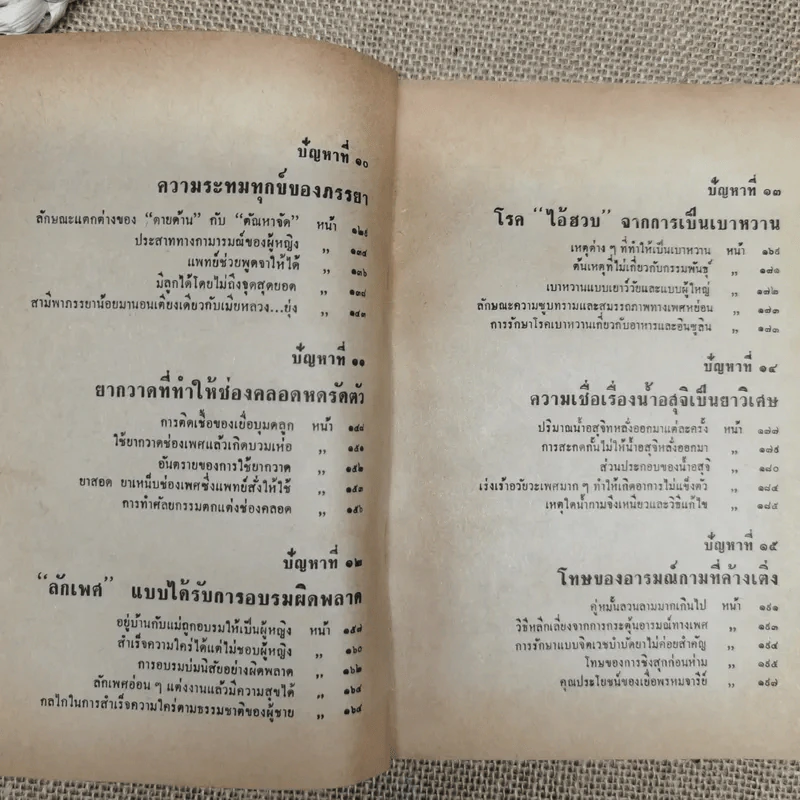 ปัญหาที่ ๑๐
ความระทมทุกข์ของภรรยา
ลักษณะแตกต่างของ “ตายด้าน” กับ “ตัณหาจัด” หน้า ๑๒๙
ประสาททางกามารมณ์ของผู้หญิง ,, ๑๓๔
แพทย์ช่วยพูดจาให้ได้ ,, ๑๓๖
มีลูกได้โดยไม่ถึงจุดสุดยอด ,, ๑๓๘
สามีพาภรรยาน้อยมานอนเตียงเดียวกับเมียหลวง...ยุ่ง ,, ๑๔๓
ปัญหาที่ ๑๑
ยากวาดที่ทำให้ช่องคลอดหดรัดตัว
การติดเชื้อของเยื่อบุมดลูก หน้า ๑๔๘
ใช้ยากวาดช่องเพศแล้วเกิดบวมเห่อ ,, ๑๕๑
อันตรายของการใช้ยากวาด ,, ๑๕๒
ยาสอด ยาเหน็บช่องเพศซึ่งแพทย์สั่งให้ใช้ ,, ๑๕๓
การทำศัลยกรรมตกแต่งช่องคลอด ,, ๑๕๖
ปัญหาที่ ๑๒
“ลักเพศ” แบบได้รับการอบรมผิดพลาด
อยู่บ้านกับแม่ถูกอบรมให้เป็นผู้หญิง หน้า ๑๕๗
สำเร็จความใคร่ได้แต่ไม่ชอบผู้หญิง ,, ๑๖๐
การอบรมบ่มนิสัยอย่างผิดพลาด ,, ๑๖๒
ลักเพศอ่อน ๆ แต่งงานแล้วมีความสุขได้ ,, ๑๖๔
กลไกในการสำเร็จความใคร่ตามธรรมชาติของผู้ชาย ,, ๑๖๔
ปัญหาที่ ๑๓
โรค “ไอ้ฮวบ” จากการเป็นเบาหวาน
เหตุต่าง ๆ ที่ทำให้เป็นเบาหวาน หน้า ๑๖๙
ต้นเหตุที่ไม่เกี่ยวกับกรรมพันธุ์ ,, ๑๗๑
เบาหวานแบบเยาว์วัยและแบบผู้ใหญ่ ,, ๑๗๒
ลักษณะความซูบทรามและสมรรถภาพทางเพศหย่อน ,, ๑๗๓
การรักษาโรคเบาหวานเกี่ยวกับอาหารและอินซูลิน ,, ๑๗๓
ปัญหาที่ ๑๔
ความเชื่อเรื่องน้ำอสุจิเป็นยาวิเศษ
ปริมาณน้ำอสุจิที่หลั่งออกมาแต่ละครั้ง หน้า ๑๗๗
การสะกดกั้นไม่ให้น้ำอสุจิหลั่งออกมา ,, ๑๗๙
ส่วนประกอบของน้ำอสุจิ ,, ๑๘๐
เร่งเร้าอวัยวะเพศมาก ๆ ทำให้เกิดอาการไม่แข็งตัว ,, ๑๘๔
เหตุใดน้ำกามจึงเหนียวและวิธีแก้ไข ,, ๑๘๙
ปัญหาที่ ๑๕
โทษของอารมณ์กามที่ค้างเติ่ง
คู่หมั้นลวนลามมากเกินไป หน้า ๑๙๑
วิธีหลีกเลี่ยงจากการกระตุ้นอารมณ์ทางเพศ ,, ๑๙๓
การรักษาแบบจิตเวชบำบัดยาไม่ค่อยสำคัญ ,, ๑๙๔
โทษของการชิงสุกก่อนห่าม ,, ๑๙๕
คุณประโยชน์ของเยื่อพรหมจารีย์ ,, ๑๙๗